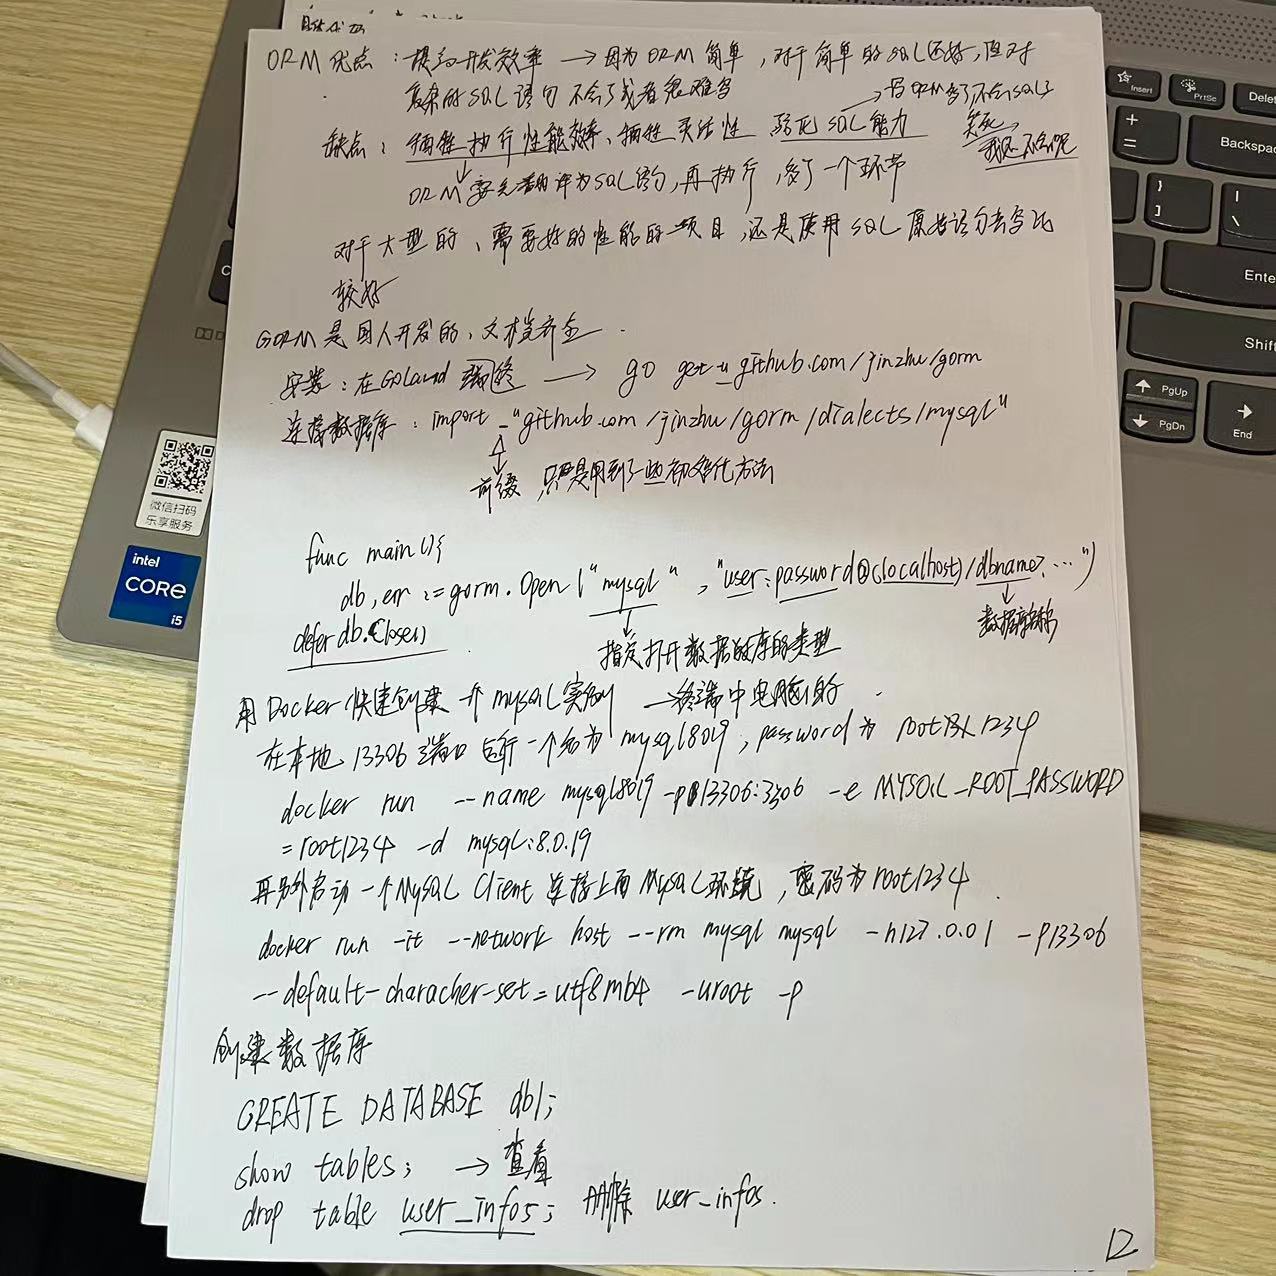 ORM优点：提高开发效率 → 因为ORM简单，对于简单的SQL还好，但对
复杂的SQL语句不会了或者很难写
→ 写ORM多了,不会SQL了
缺点：牺牲执行性能效率、牺牲灵活性 弱化SQL能力
笑死,
我还不会呢
ORM要先翻译为SQL语句,再执行,多了一个环节
对于大型的、需要好的性能的项目,还是使用SQL原始语句去写比
较好
GORM是国人开发的、文档齐全.
安装：在Goland终端 → go get -u github.com/jinzhu/gorm
连接数据库：import _ "github.com/jinzhu/gorm/dialects/mysql"
前缀,只是用到了一些初始化方法
func main(){
db,err := gorm.Open("mysql", "user:password@(localhost)/dbname?...")
defer db.Close()
指定打开数据库的类型
数据库名称
用Docker快速创建一个mysql实例 → 终端中电脑的.
在本地13306端口运行一个名为mysql8019, password为 root1234
docker run --name mysql8019 -p 13306:3306 -e MYSQL_ROOT_PASSWORD
=root1234 -d mysql:8.0.19
再另外启动一个MySQL Client 连接上面MySQL环境，密码为root1234.
docker run -it --network host --rm mysql mysql -h127.0.01 -P13306
--default-characher-set=utf8mb4 -uroot -p
创建数据库
CREATE DATABASE db1;
show tables; → 查看
drop table user_infos; 删除 user_infos.
12
Insert
PrtSc
Delete
Backspace
Enter
Shift
PgUp
PgDn
End
微信扫码
乐享服务
intel
CORE
i5